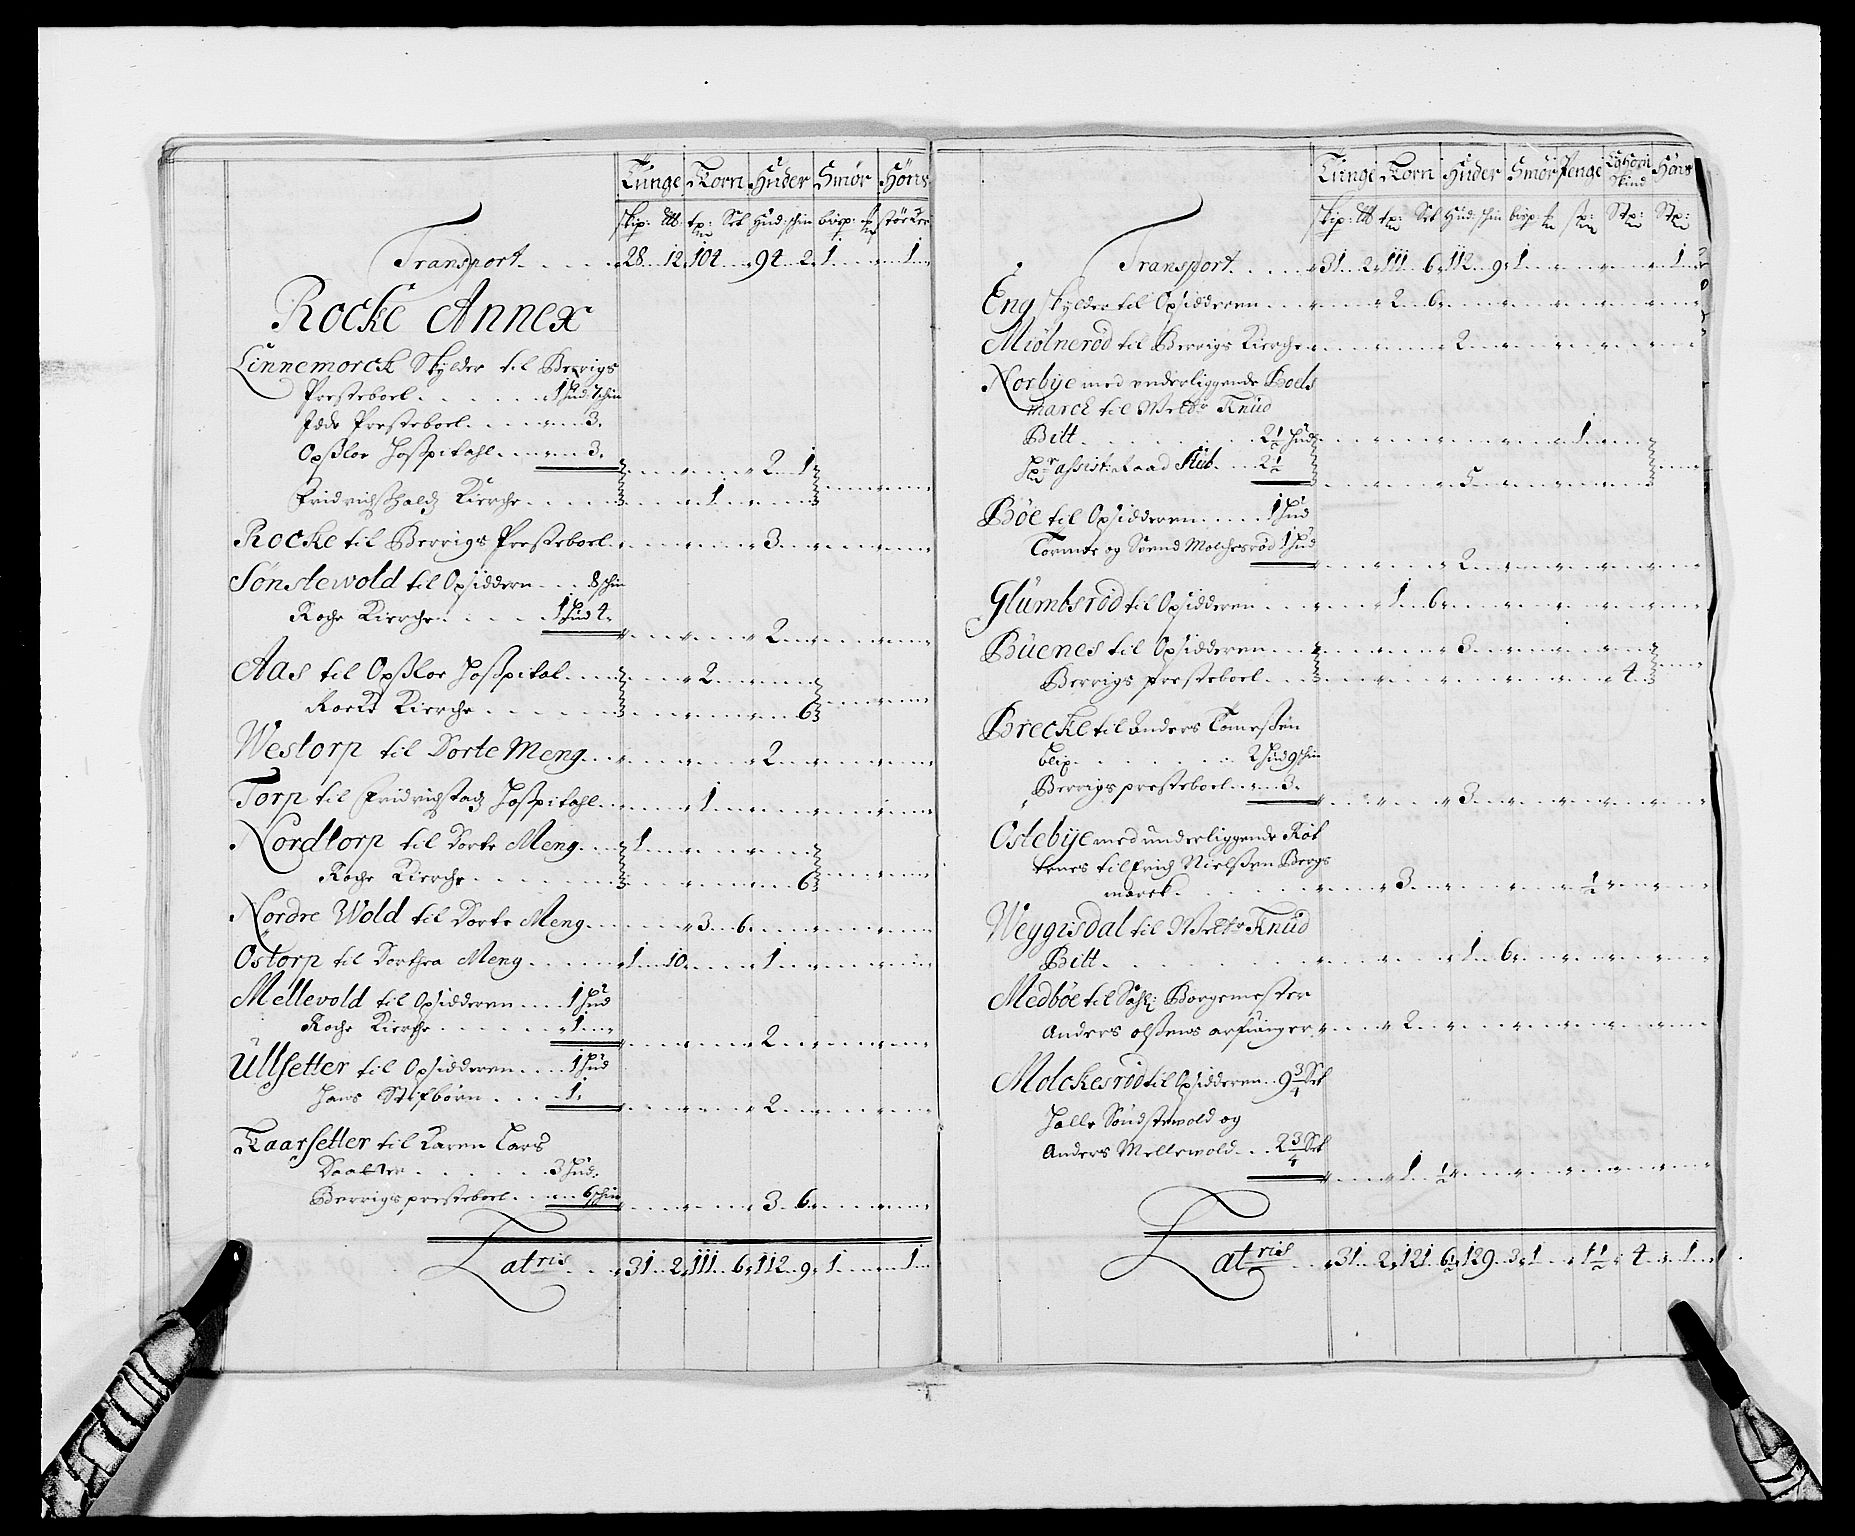 Tunge Korn Huder Smör Höns
skip: tp: Set Hud: skin bisp: störcker
Transport 28 12 104 94 2 1 1
Rocke Annex
Linnemorck Skylder til Berrigs
Presteboel 1 Hud: 7 skin
Jdde Presteboel 3.
Opsloe Hospitahl 3. 2 1
Fridrichshalds Kierche 1
Rocke til Berrigs Presteboel 3
Sönstewold til Opsiddern 8 skin
Roche Kierche 1 Hud 4. 2
Aas til Opsloe Hospital 2
Rocke Kierche 6
Westorp til Dorte Meng 2
Torp til Fridrichstads Hospitahl 1
Nordtorp til Dorte Meng 1
Roche Kierche 6
Nordre Wold til Dorte Meng 3 6
Ostorp til Dorthea Meng 1 10 1
Mellevold til Opsidderen 1 Hud
Roche Kierche 1 2
Ullsetter til Opsidderen 1 Hud
Hans Stifbörn 1. 2
Kaarsetter til Karen Lars
Daatter 3 Hud.
Berrigs presteboel 6 skin 3 6
Latris 31 2 111 6 112 9 1 1
Tunge Korn Huder Smör Penge Skind Höns
skip: tp: Set Hud: skin bisp: Stp: Stp:
Transport 31 2 111 6 112 9 1 1
Eng skylder til Opsidderen 2 6
Miölneröd til Berrigs Kierche 2
Norbye med underliggende Boels
march til Welb: Knud
Bitt 2½ Hud 1
assist: Raad Stub 2½ 5
Böe til Opsidderen 1 Hud
Tormoe og Svend Molchesröd 1 Hud 2
Glumbsröd til Opsidderen 1 6
Buenes til Opsidderen 3
Berrigs presteboel 4
Brecke til Anders Tomessen
2 Hud 9 skin
Berrigs presteboel 3. 3
Ostebye med underliggende Röt
tenes til Erich Nielssen Bergs
march 3 ½
Weygisdal til Welb: Knud
Bitt 1 6
Medböe til Sahl: Borgemester
Anders olssens arfvinger 2
Molckesröd til Opsidderen 9¾ Set
Halle Söndstewold og
Anders Mellewold 2¾ Set 1 ½
Latris 31 2 121 6½ 129 3 1 1½ 4 1